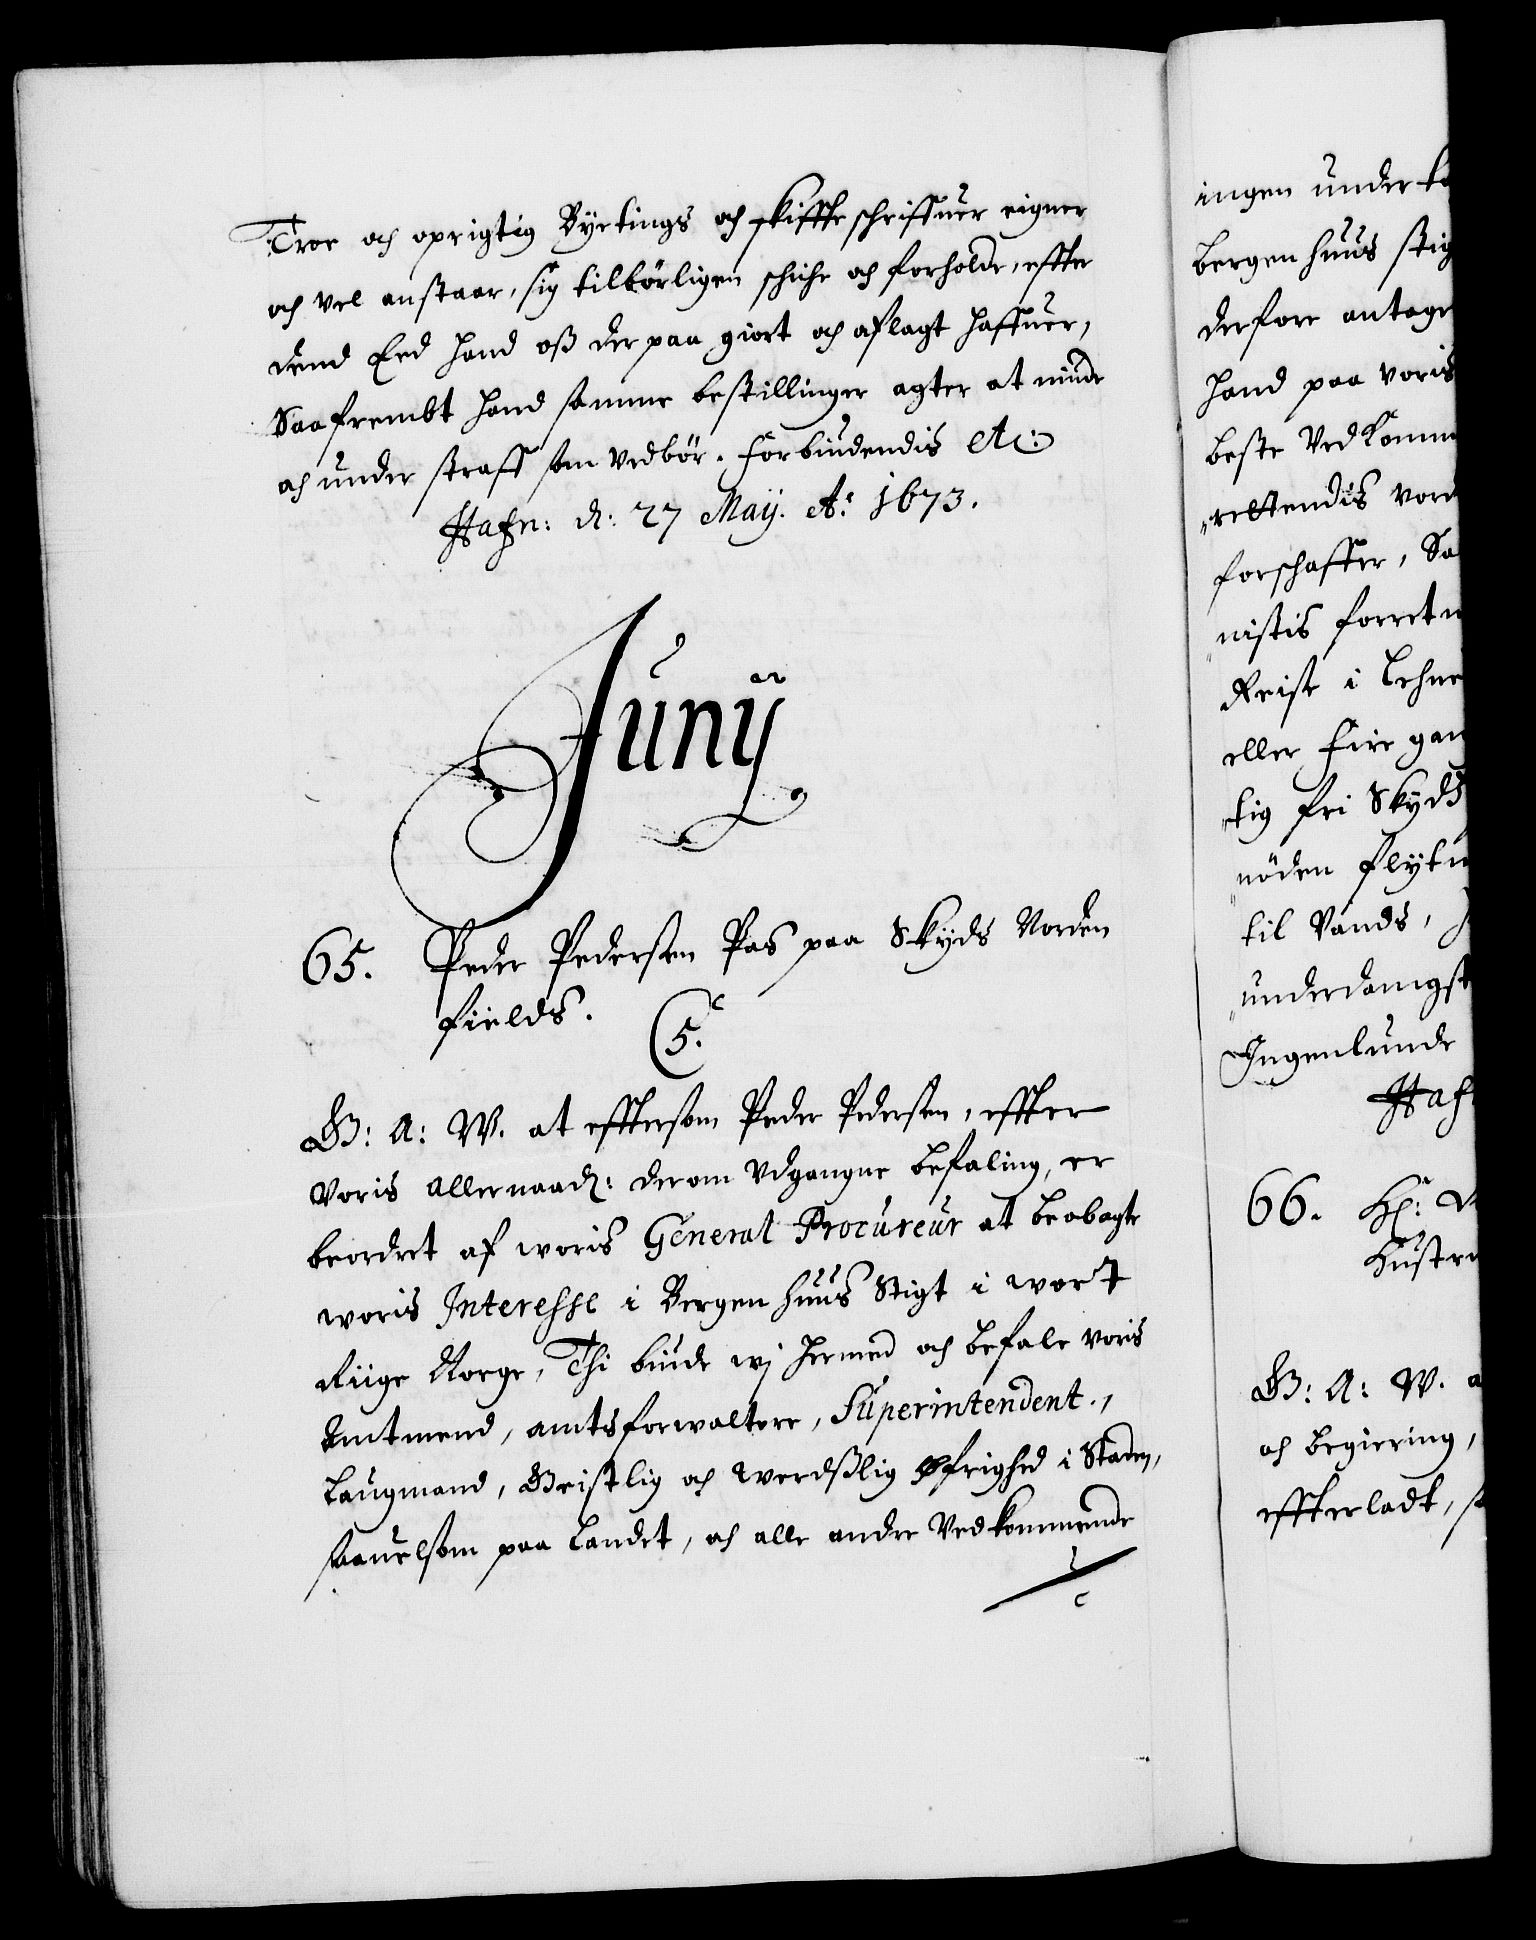 Troe och oprigtig Byetings och skiffteschriffuer eigner
och vel anstaar, sig tilbörligen schiche och forholde, effter
dend Eed hand oß der paa giort och aflagt haffuer,
Saafrembt hand samme bestillinger agter at niude
och under straff som vedbör. Forbiudendis etc:
Hafn: d: 27 Maij. Ao 1673.
Junij
65. Peder Pedersen Pas paa Skyds Norden
fields.
5.
G: A: W. at efftersom Peder Pedersen, effter
Voris allernaad: derom Udgangne befaling, er
beordret af woris General Procureur at beobagte
woris Interesse i Bergenhuus Stigt i wort
Riige Norge, Thi biude wj hermed och befale voris
Amtmend, amtsforwaltere, Superintendent.,
Laugmand, Geistlig och Werdßlig Øfrighed i Staden,
saauelsom paa Landet, och alle andre Vedkommende
ingen under
bergenhuus stig
derfore antage
hand paa voris
beste Ved komm
rettendis vord
forschaffer, Sa
nistis forretn
Reise i Lehne
eller fire gan
tig fri Skyds
nöden flytn
til Vands,
underdanigst
Ingenlunde
Haf
66.
Hustru
G: A: W. a
och begiering,
effterladt,